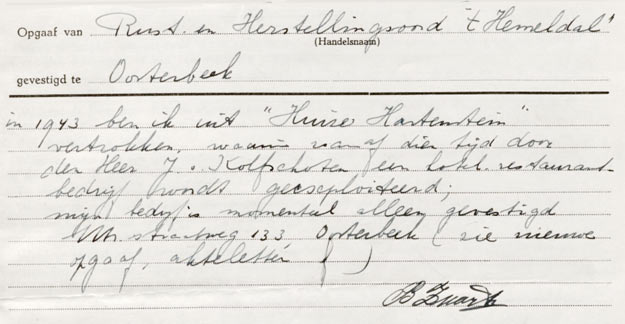 Opgaaf van Rust. en Herstellingsoord 't Hemeldal"
(Handelsnaam)
gevestigd te Oosterbeek
in 1943 ben ik uit "Huize Hartenstein"
vertrokken, waarin vanaf dien tijd door
den Heer J. Kolfschoten een hotel. restaurant-
bedrijf wordt geëxploiteerd;
mijn bedrijf is momenteel alleen gevestigd
Utr. straatweg 133 Oosterbeek (zie nieuwe
opgaaf, akteletter )
B Zwarts